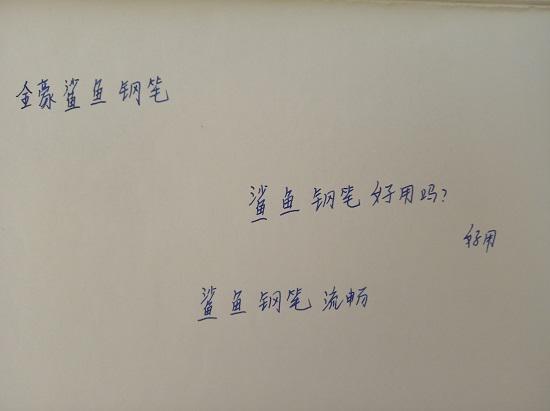 金豪鲨鱼钢笔
鲨鱼钢笔好用吗?
好用
鲨鱼钢笔流畅